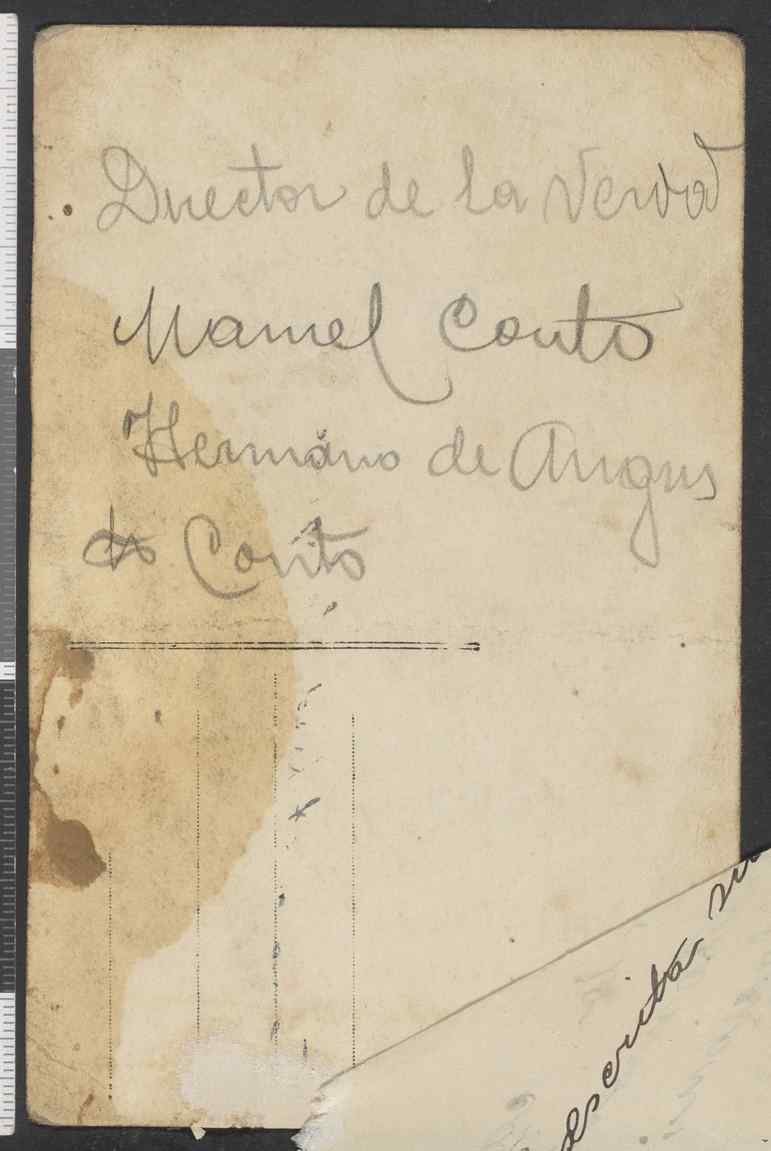 Director de la Verdad
Manuel Couto
Hermano de Angus
to Couto
escrita